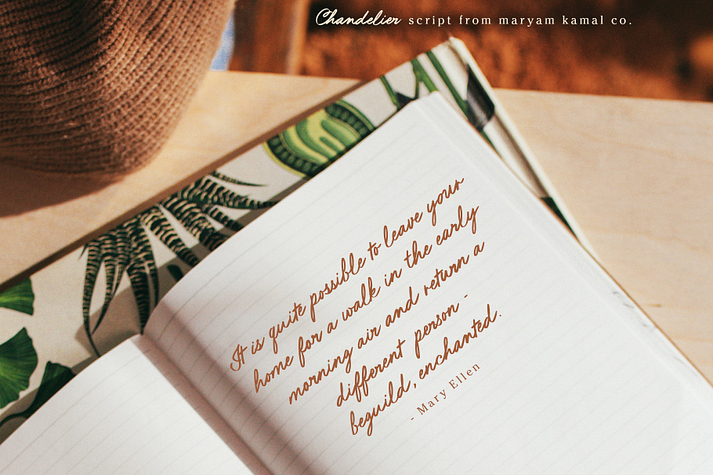 Chandelier script from maryam kamal co.
It is quite possible to leave your
home for a walk in the early
morning air and return a
different person -
beguild, enchanted.
- Mary Ellen